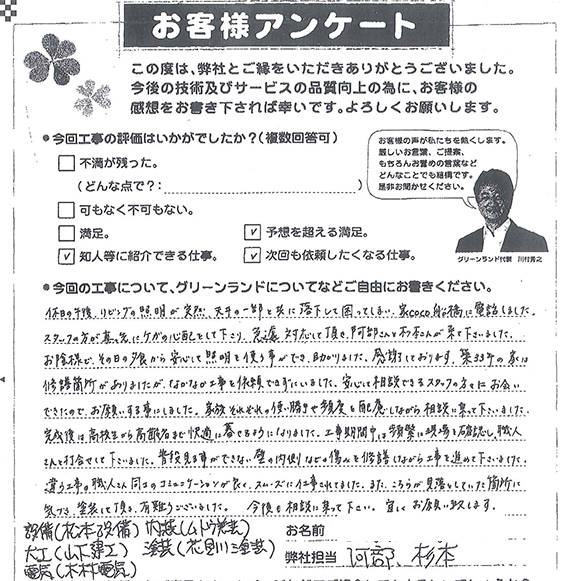 お客様アンケート
この度は、弊社とご縁をいただきありがとうございました。
今後の技術及びサービスの品質向上の為に、お客様の
感想をお書き下されば幸いです。よろしくお願いします。
●今回工事の評価はいかがでしたか?(複数回答可)
不満が残った。
(どんな点で?: )
可もなく不可もない。
満足。
✓ 予想を超える満足。
✓ 知人等に紹介できる仕事。
✓ 次回も依頼したくなる仕事。
お客様の声が私たちを熱くします。
厳しいお言葉、ご提案、
もちろんお誉めの言葉など
どんなことでも結構です。
是非お聞かせください。
グリーンランド代表 川村秀之
●今回の工事について、グリーンランドについてなどご自由にお書きください。
休日の午後、リビングの照明が突然、天井の一部と共に落下して困ってしまい、家COCO船橋に電話しました。
スタッフの方が真先にケガの心配をして下さり、急遽対応して頂き、阿部さんと杉本さんが来て下さいました。
お陰様で、その日の夕食から安心して照明を使う事ができ、助かりました。感謝しております。築33年の家は
修繕箇所がありましたが、なかなか工事を依頼できずにいました。安心して相談できるスタッフの方々にお会い
できたので、お願いする事にしました。家族それぞれの使い勝手や頻度を配慮しながら相談に乗って下さいました。
完成後は高校生から高齢者まで快適に暮せるようになりました。工事期間中は頻繁に現場を確認し、職人
さんと打合せして下さいました。普段見る事ができない壁の内側などの傷みを修繕しながら工事を進めて下さいました。
違う工事の職人さん同士のコミュニケーションが良く、スムーズに仕事されてました。また、こちらが見落としていた箇所に
気づき、塗装して頂き、有難うございました。今後も相談に乗って下さい。宜しくお願い致します。
設備(松本設備) 内装(ムトウ美装)
大工(山下建工) 塗装(花見川塗装)
電気(木村電気)
お名前
弊社担当 阿部、杉本